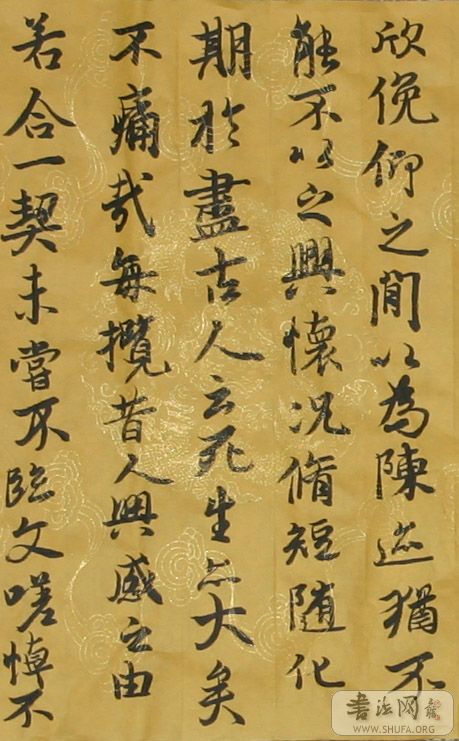 欣俛仰之間以為陳迹猶不
能不以之興懷況脩短随化
期於盡古人云死生亦大矣
不痛哉每攬昔人興感之由
若合一契未嘗不臨文嗟悼不
書法网
WWW.SHUFA.ORG